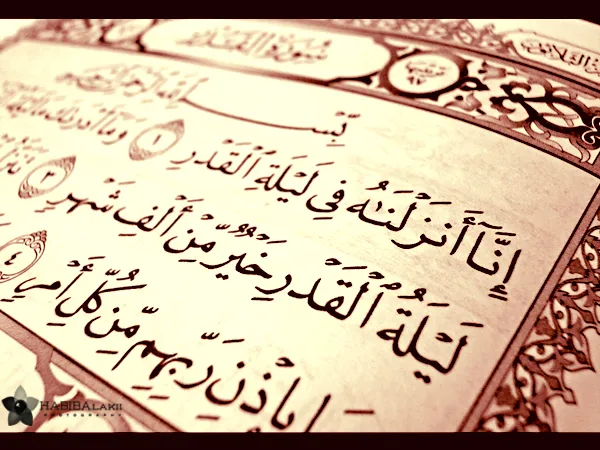 سورة القدر
بِسْمِ اللَّهِ الرَّحْمَٰنِ الرَّحِيمِ
إِنَّآ أَنزَلْنَٰهُ فِي لَيْلَةِ ٱلْقَدْرِ ١ وَمَآ أَدْرَىٰكَ مَا لَيْلَةُ
لَيْلَةُ ٱلْقَدْرِ خَيْرٌ مِّنْ أَلْفِ شَهْرٍ ٣
بِإِذْنِ رَبِّهِم مِّن كُلِّ أَمْرٍ ٤
HABIBALAKII
PHOTOGRAPHY